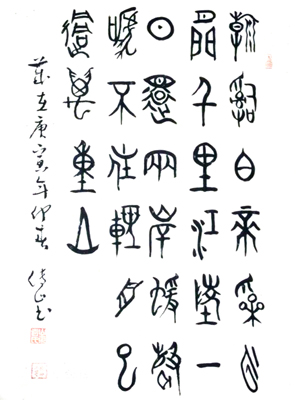 朝辭白帝采云
間千里江陵一
日還兩岸蝯聲
嗁不住輕舟已
過萬重山
歲在庚寅年仲春